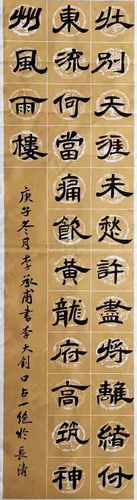 壯別天涯未愁許盡將離緒付
東流何當痛飲黃龍府高筑神
州風雨樓
庚子冬月李承甫書李大釗口占一絕於長清